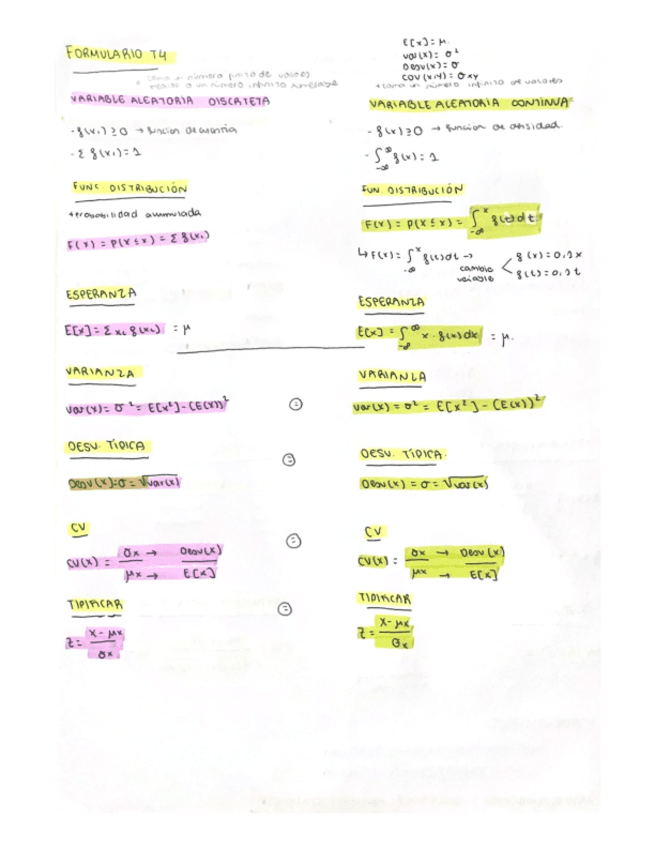 FORMULARIO T4
E[X] = μ.
var(X) = σ²
Desv(X) = σ
COV(X,Y) = σxy
* toma un número finito de valores
número infinito numerable
VARIABLE ALEATORIA DISCRETA
- f(xᵢ) ≥ 0 → función de cuantía
- Σ f(xᵢ) = 1
FUNC. DISTRIBUCIÓN
* Probabilidad acumulada
F(x) = P(X ≤ x) = Σ f(xᵢ)
ESPERANZA
E[X] = Σ xᵢ f(xᵢ) = μ
VARIANZA
Var(X) = σ² = E[X²] - (E(X))²
DESV. TÍPICA
Desv(X) = σ = √var(x)
CV
CV(X) = σx → Desv(X)
μx → E[X]
TIPIFICAR
Z = X - μx
σx
* toma un número infinito de valores
VARIABLE ALEATORIA CONTINUA
- f(x) ≥ 0 → función de densidad.
- ∫_-∞^∞ f(x) = 1
FUN. DISTRIBUCIÓN
F(x) = P(X ≤ x) = ∫_-∞^x f(t) dt
↳ F(x) = ∫_-∞^x f(t) dt → cambio variable < f(x) = 0,2x
f(t) = 0,2t
ESPERANZA
E[X] = ∫_-∞^∞ x · f(x) dx = μ.
VARIANZA
= Var(X) = σ² = E[X²] - (E(X))²
DESV. TÍPICA.
= Desv(X) = σ = √var(x)
CV
= CV(X) = σx → Desv(X)
μx → E[X]
TIPIFICAR
= Z = X - μx
σx